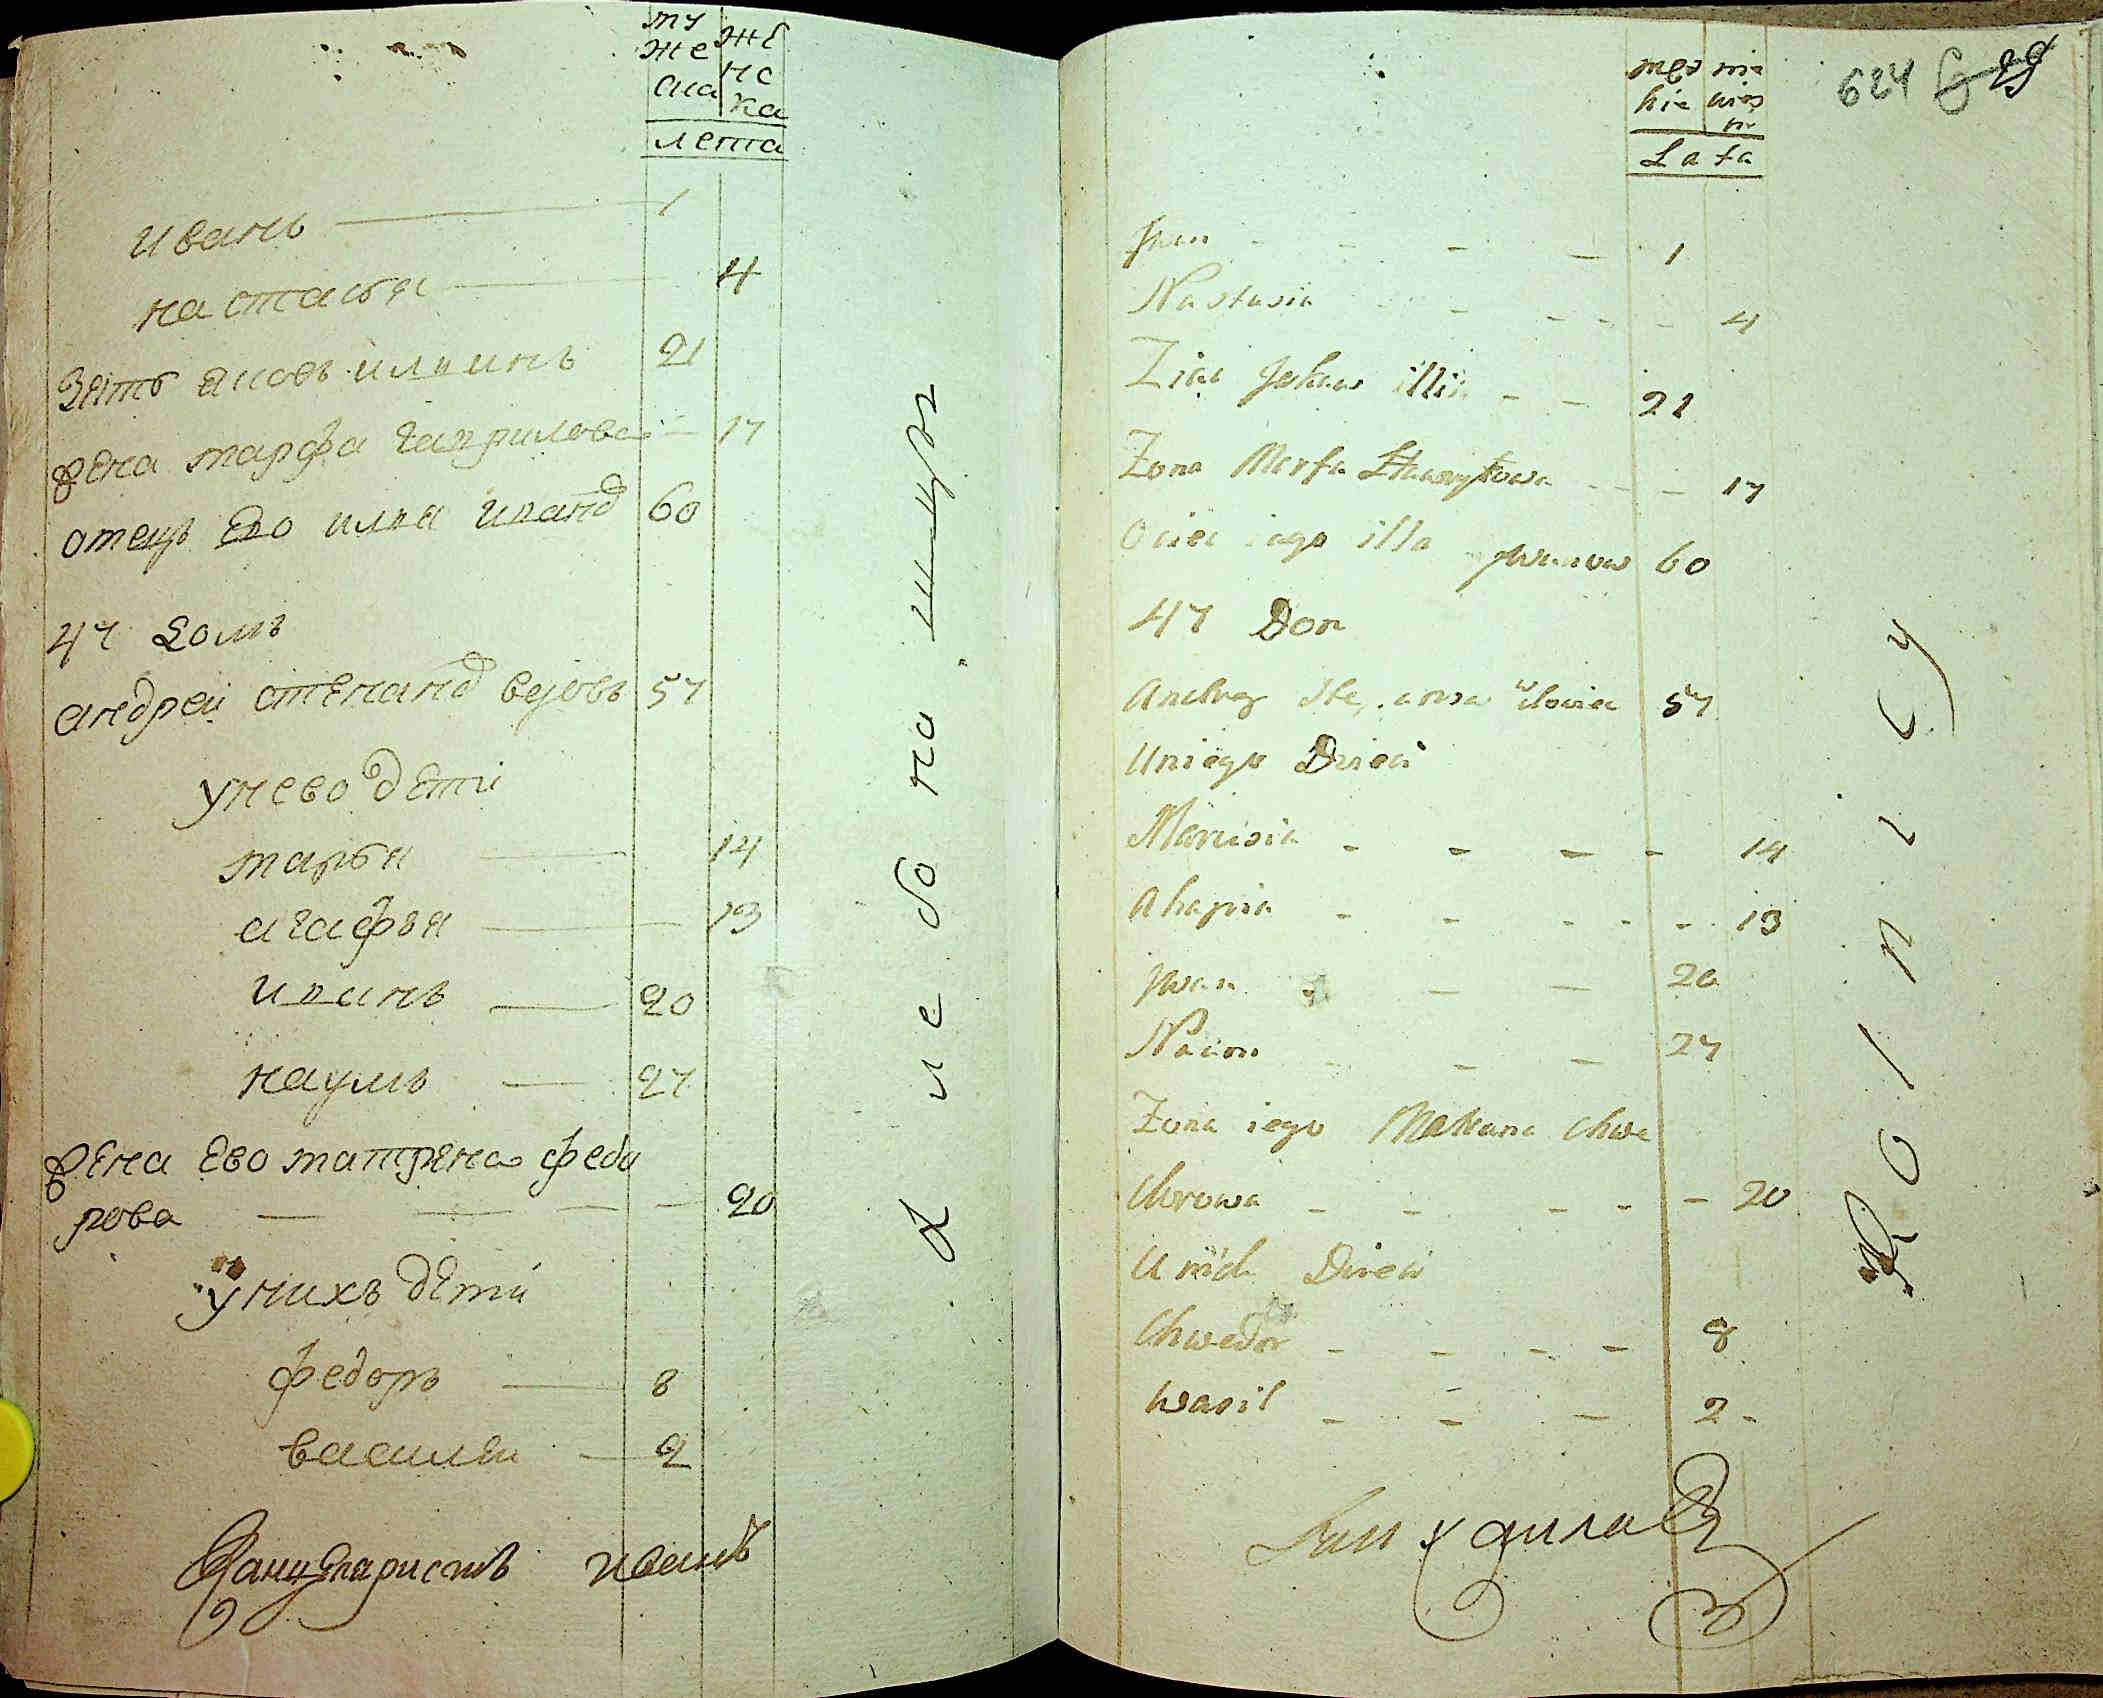 му же ска
же нс ка
лета
иванъ 1
настасья 4
Зять яковъ ильинъ 21
жена марфа гаврилова 17
отецъ ево илья иванов 60
47 домъ
андрей степанов вдовъ 57
унево дети
марья 14
агафья 13
иванъ 20
наумъ 27
жена ево матрена федо
рова 20
унихъ дети
федоръ 8
василей 2
Канцеляристъ иванъ
Хлебопашцы
624 29
mez kie
nie wies
Lata
Jwan 1
Nastasia 4
Ziac Jakow illin 21
Zona Marfa Hawryłowa 17
Ociec iago illa Jwanow 60
47 Dom
Andrey Ste anow wdowiec 57
Uniego Dzieci
Marusia 14
Ahapia 13
Jwan 20
Naum 27
Zona iego Matrana Chwe
dorowa 20
U nich Dzieci
Chwedor 8
Wasil 2
Rolnicy